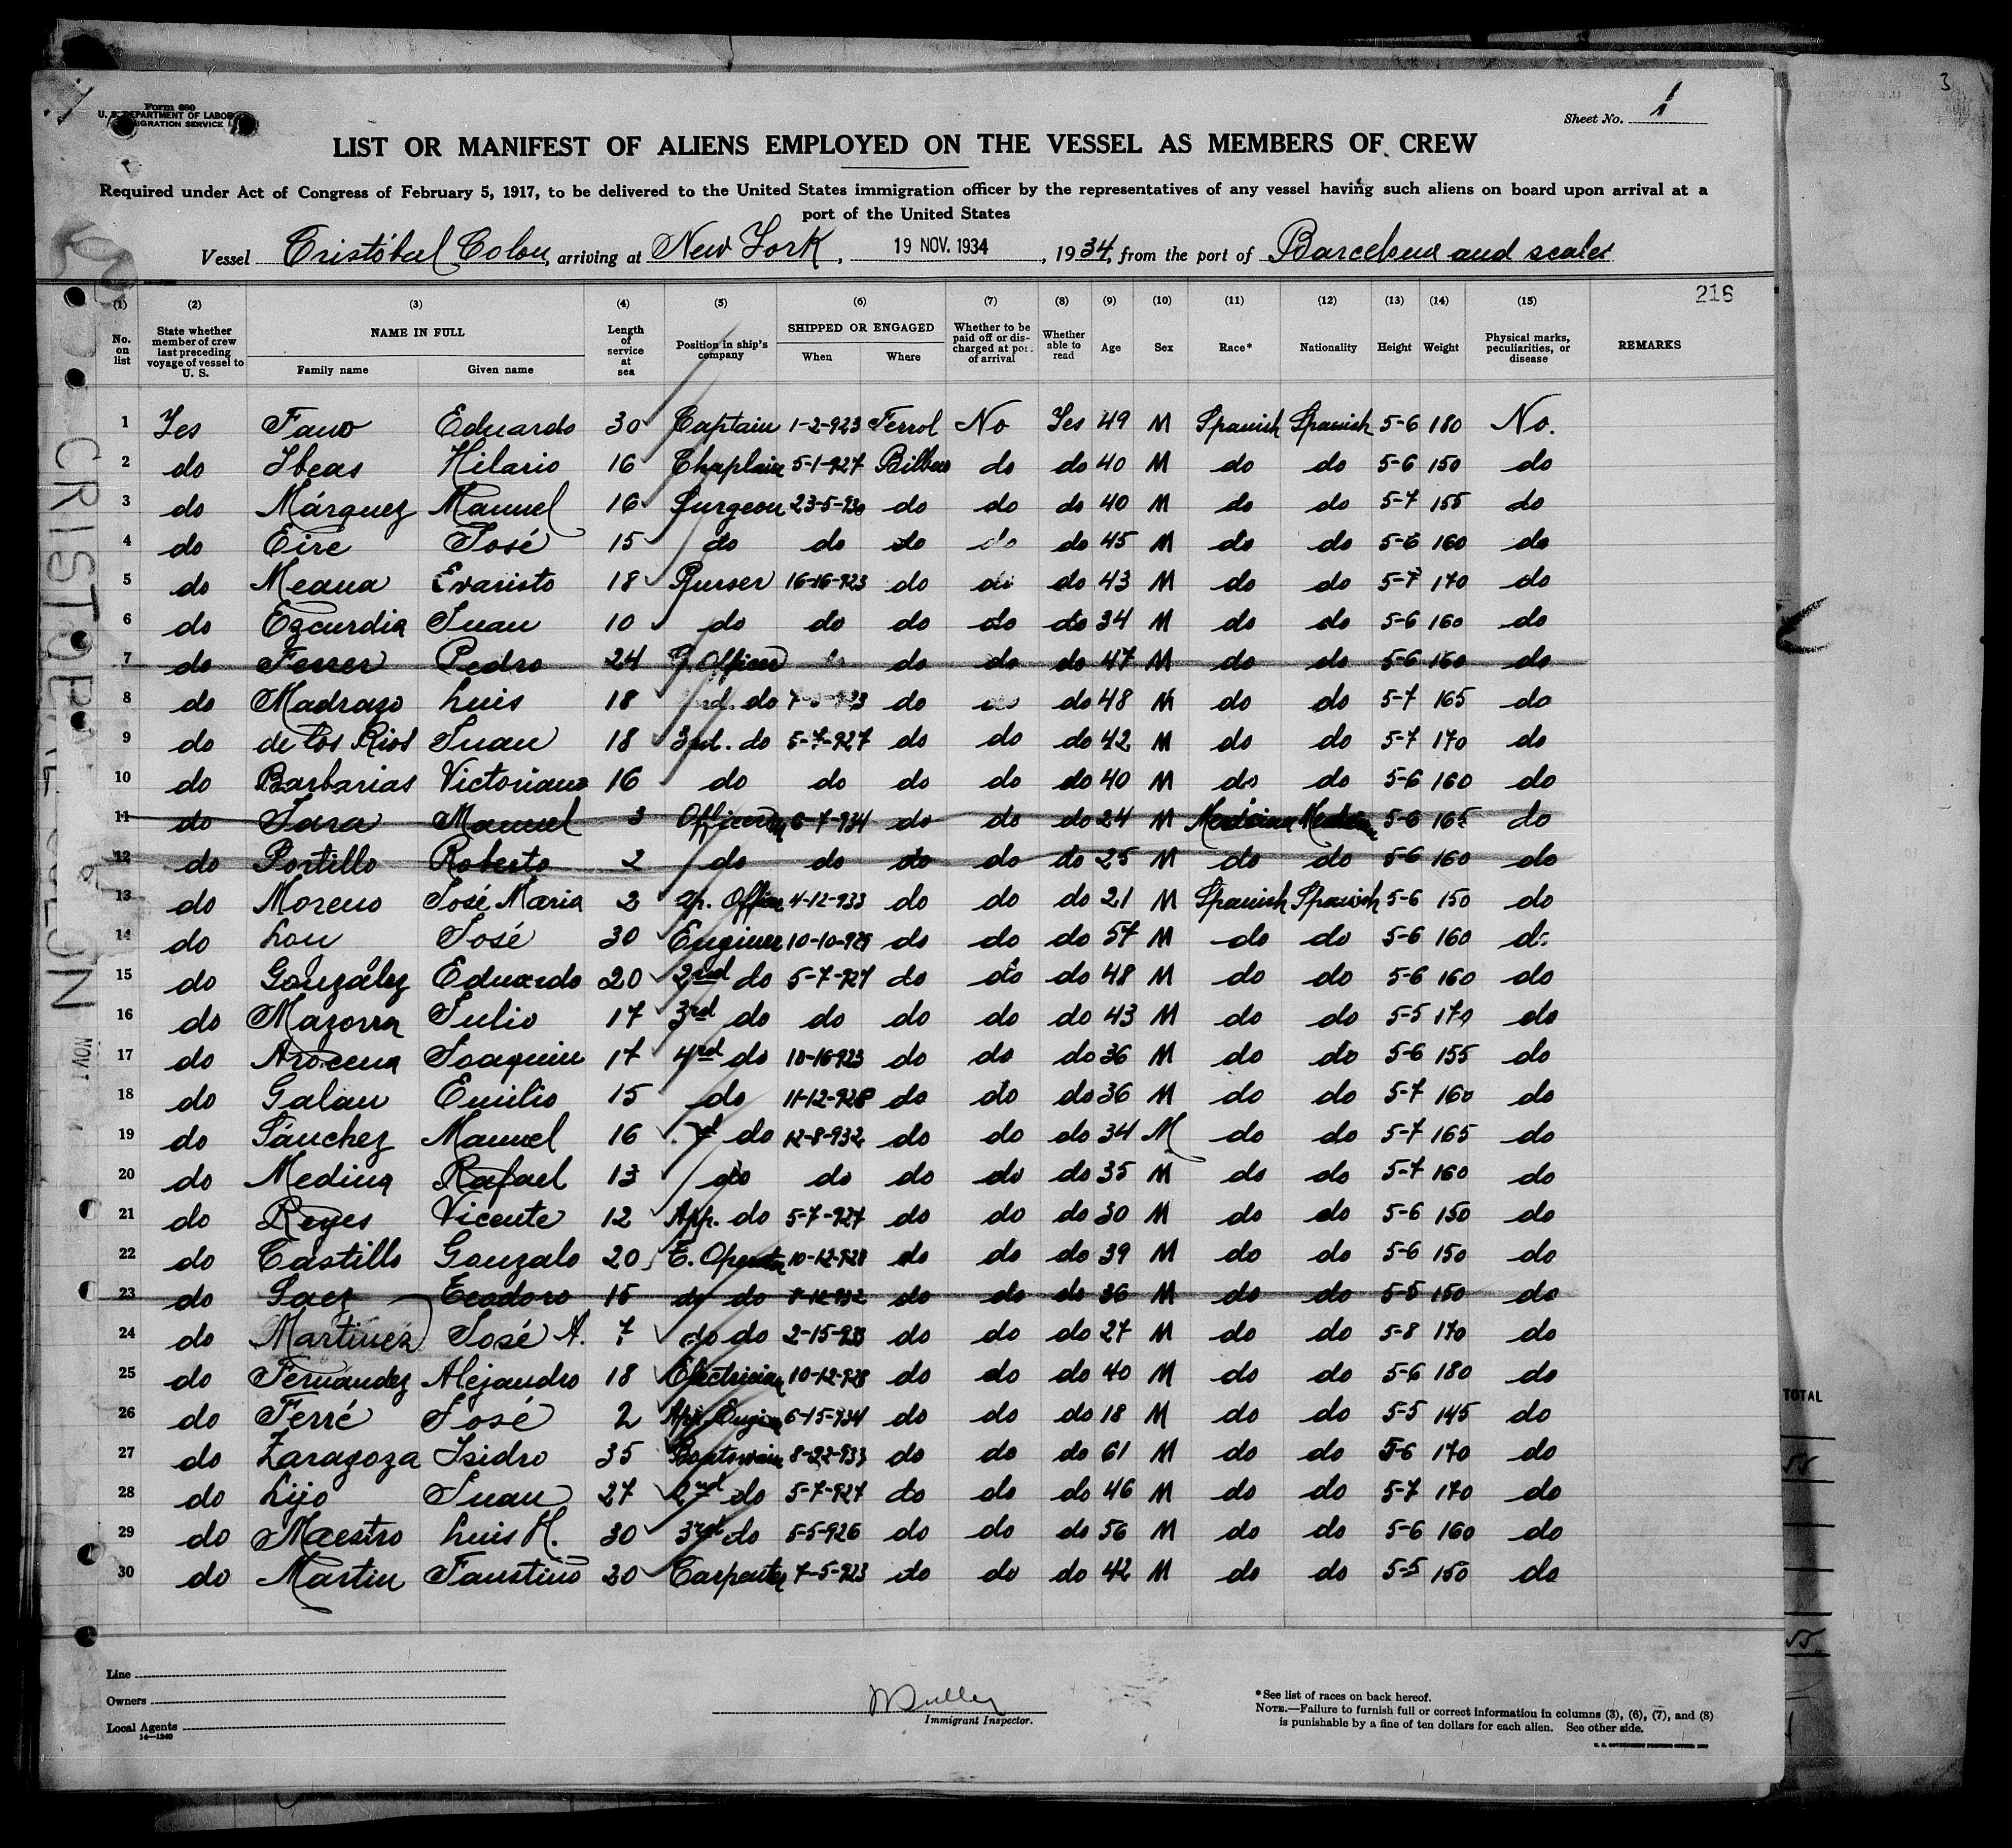 Form 680
U. S. DEPARTMENT OF LABOR
IMMIGRATION SERVICE
Sheet No. 1
3
LIST OR MANIFEST OF ALIENS EMPLOYED ON THE VESSEL AS MEMBERS OF CREW
Required under Act of Congress of February 5, 1917, to be delivered to the United States immigration officer by the representatives of any vessel having such aliens on board upon arrival at a
port of the United States
Vessel Cristóbal Colon, arriving at New York, 19 NOV. 1934, 1934, from the port of Barcelona and scales
216
(1) (2) (3) (4) (5) (6) (7) (8) (9) (10) (11) (12) (13) (14) (15)
No. on list State whether member of crew last preceding voyage of vessel to U. S. NAME IN FULL Family name Given name Length of service at sea Position in ship's company SHIPPED OR ENGAGED When Where Whether to be paid off or discharged at port of arrival Whether able to read Age Sex Race* Nationality Height Weight Physical marks, peculiarities, or disease REMARKS
1 Yes Fano Eduardo 30 Captain 1-2-923 Ferrol No Yes 49 M Spanish Spanish 5-6 180 No.
2 do Ibeas Hilario 16 Chaplain 5-1-927 Bilbao do do 40 M do do 5-6 150 do
3 do Márquez Manuel 16 Surgeon 23-5-930 do do do 40 M do do 5-7 155 do
4 do Eire José 15 do do do do do 45 M do do 5-6 160 do
5 do Meana Evaristo 18 Purser 16-16-923 do do do 43 M do do 5-7 170 do
6 do Ezcurdia Juan 10 do do do do do 34 M do do 5-6 160 do
7 do Ferrer Pedro 24 Officer do do do 47 M do do 5-6 160 do
8 do Madrazo Luis 18 do do do do 48 M do do 5-7 165 do
9 do de los Rios Juan 18 3rd. do 5-7-927 do do do 42 M do do 5-7 170 do
10 do Barbarias Victoriano 16 do do do do do 40 M do do 5-6 160 do
11 do Jara Manuel 3 Officer 6-7-934 do do do 24 M 5-6 165 do
12 do Portillo Roberto 2 do do do do do 25 M do do 5-6 160 do
13 do Moreno José Maria 2 Ap. Officer 4-12-933 do do do 21 M Spanish Spanish 5-6 150 do
14 do Lou José 30 Engineer 10-10-929 do do do 57 M do do 5-6 160 do
15 do González Eduardo 20 2nd do 5-7-927 do do do 48 M do do 5-6 160 do
16 do Mazorra Julio 17 3rd do do do do do 43 M do do 5-5 170 do
17 do Arocena Joaquin 17 4rd do 10-16-923 do do do 36 M do do 5-6 155 do
18 do Galan Emilio 15 do 11-12-928 do do do 36 M do do 5-7 160 do
19 do Sánchez Manuel 16 do 12-8-932 do do do 34 M do do 5-7 165 do
20 do Medina Rafael 13 do do do do do 35 M do do 5-7 160 do
21 do Reyes Vicente 12 App. do 5-7-927 do do do 30 M do do 5-6 150 do
22 do Castillo Gonzalo 20 E. Operator 10-12-928 do do do 39 M do do 5-6 150 do
23 do Saez Teodoro 15 do do do do do 36 M do do 5-5 150 do
24 do Martinez José A. 7 do do 2-15-933 do do do 27 M do do 5-8 170 do
25 do Fernández Alejandro 18 Electrician 10-12-928 do do do 40 M do do 5-6 180 do
26 do Ferré José 2 App. Engin 6-15-934 do do do 18 M do do 5-5 145 do
27 do Zaragoza Isidro 35 Boatswain 8-22-933 do do do 61 M do do 5-6 170 do
28 do Lijo Juan 27 2nd do 5-7-927 do do do 46 M do do 5-7 170 do
29 do Maestro Luis M. 30 3rd do 5-5-926 do do do 56 M do do 5-6 160 do
30 do Martin Faustino 20 Carpenter 7-5-923 do do do 42 M do do 5-5 150 do
CRISTOBAL COLON
NOV
TOTAL
Line
Owners
Local Agents
14—1240
Immigrant Inspector.
*See list of races on back hereof.
NOTE.—Failure to furnish full or correct information in columns (3), (6), (7), and (8)
is punishable by a fine of ten dollars for each alien. See other side.